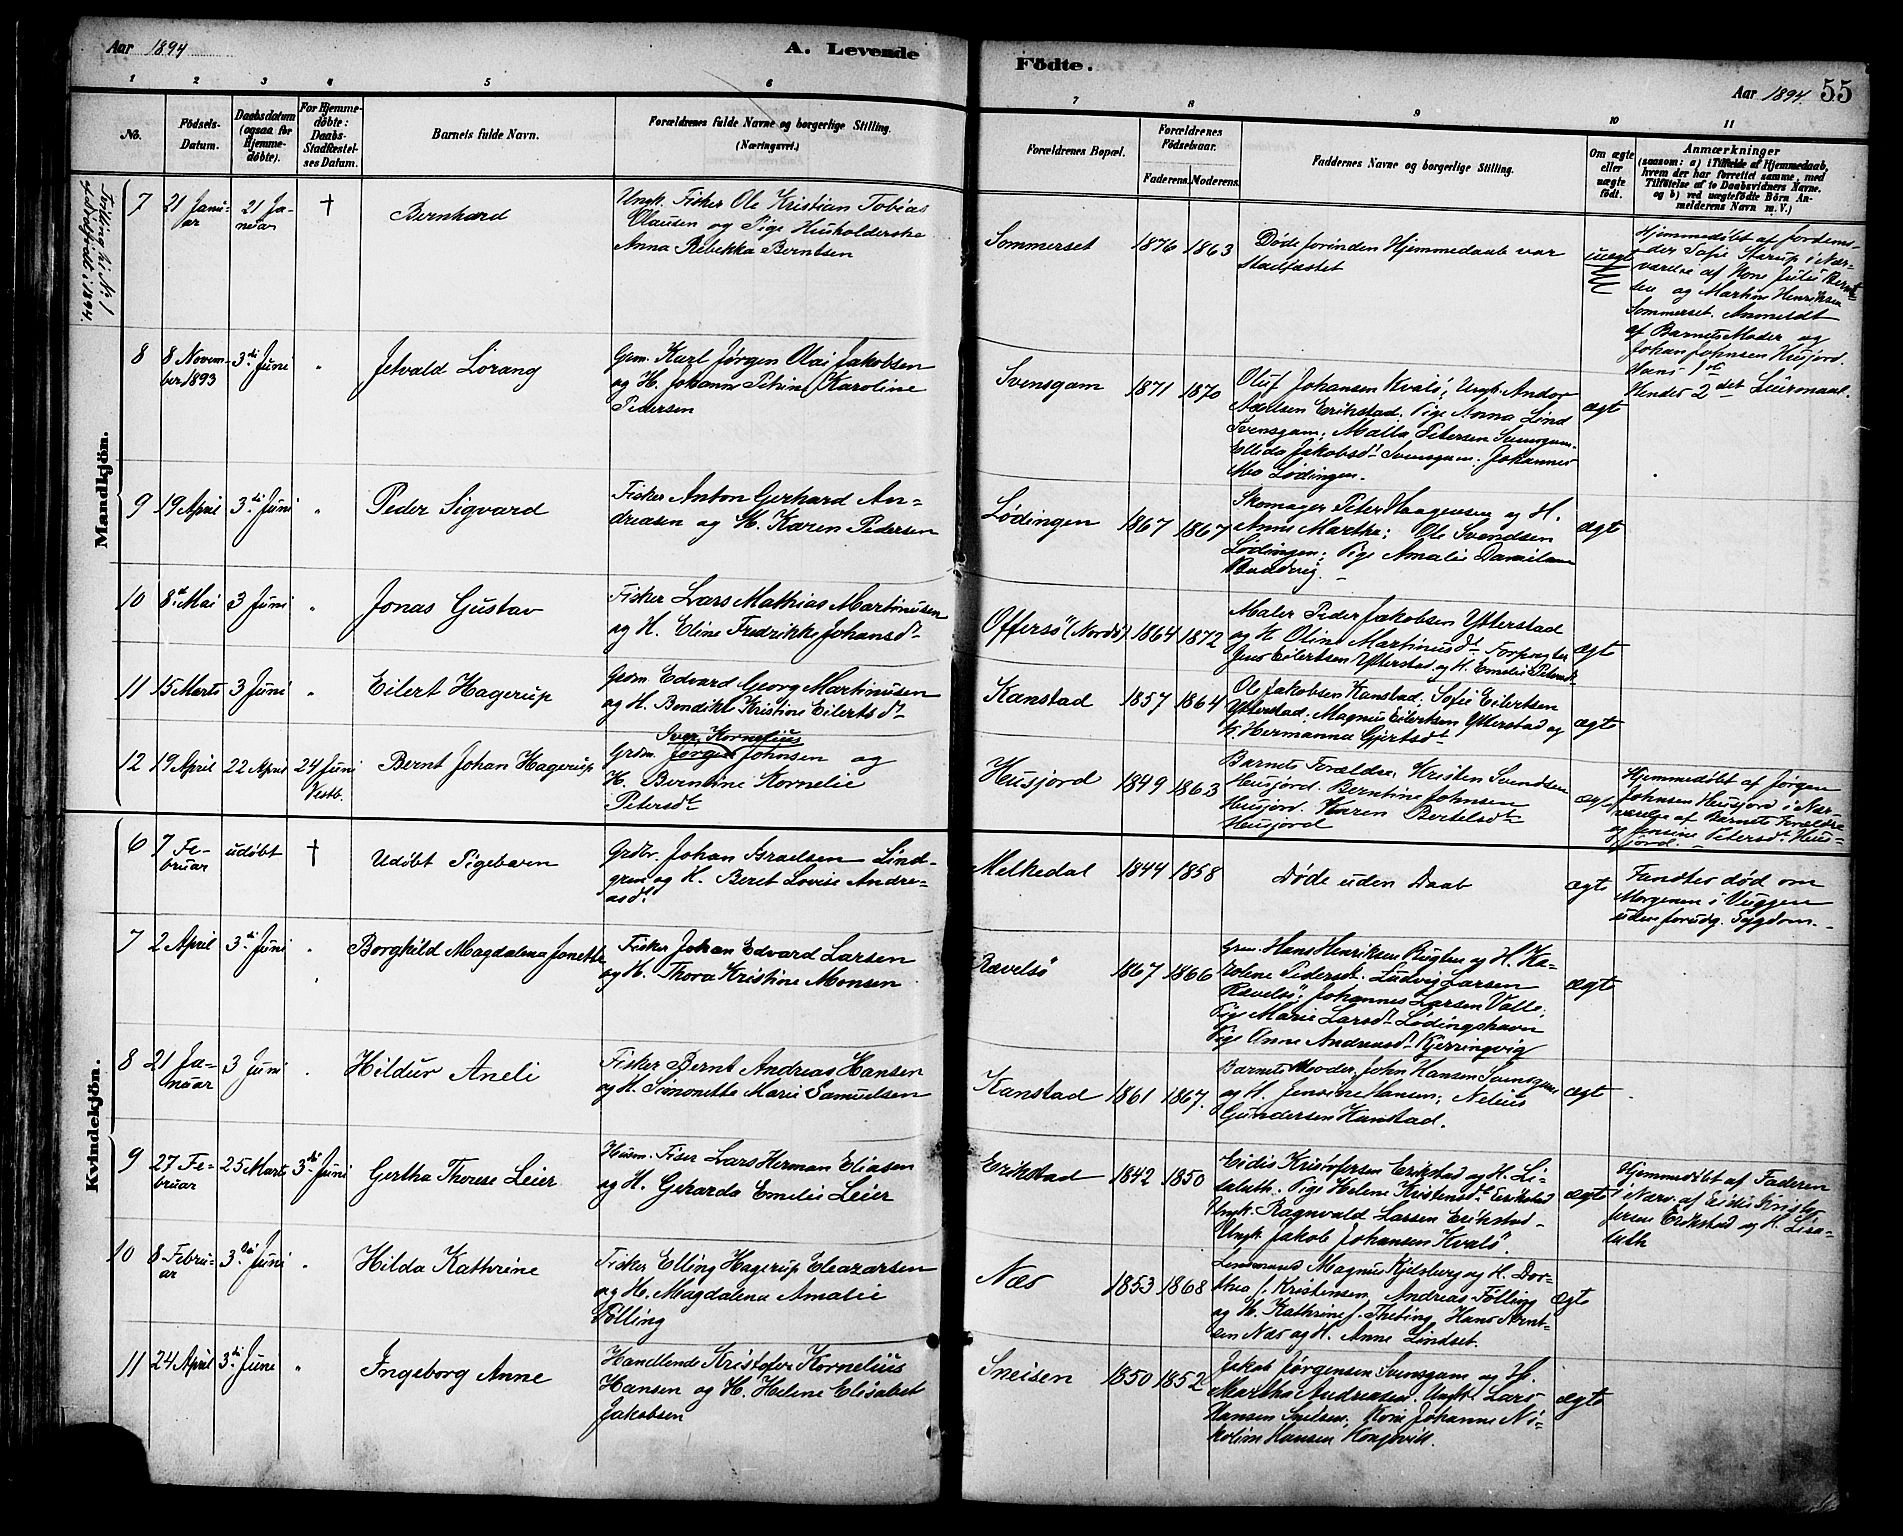 Aar 1894
A. Levende
Födte.
Aar 1894.
55
1 2 3 4 5 6 7 8 9 10 11
No.
Födsels-
Datum.
Daabsdatum
(ogsaa for
Hjemme-
döbte).
For Hjemme-
döbte:
Daabs-
Stadfæstel-
ses Datum.
Barnets fulde Navn.
Forældrenes fulde Navne og borgerlige Stilling.
(Næringsvei.)
Forældrenes Bopæl.
Forældrenes
Födselsaar.
Faderens. Moderens.
Faddernes Navne og borgerlige Stilling.
Om ægte
eller
uægte
födt.
Anmærkninger
(saasom: a) i Tilfælde af Hjemmedaab,
hvem der har forrettet samme, med
Tilföielse af to Daabsvidners Navne.
og b) ved uægtefödte Börn An-
melderens Navn m. V.)
Tvilling til No 1
i 1894.
Mandkjön.
7
21 Janu-
ar
21 Ja-
nuar
†
Bernhard
Ungk. Fisker Ole Kristian Tobias
Olausen og Pige Husholderske
Anna Rebekka Berntsen
Sommerset
1876 1863
Døde forinden Hjemmedaab var
stadfæstet
uægte
Hjemmedøbt af Jordemo-
der Sofie Starup i Nær-
værelse af Kone Julie Bernt-
sen og Martin Henriksen
Sommerset. Anmeldt
af Barnets Moder og
Johan Johnsen Husjord.
Hans 1ste
Hendes 2det Leiermaal.
8
8 Novem-
ber 1893
3die Juni
"
Jetvald Lorang
Grm. Karl Jørgen Olai Jakobsen
og H. Johanna Petrine Karoline
Pedersen
Svensgam
1871 1870
Oluf Johansen Kvalø, Ungk. Andor
Axelsen Erikstad. Pige Anna Lind
Svensgam; Malla Petersen Svensgam.
Ellida Jakobsdt Svensgam. Johannes
Mo Lødingen.
ægte
9
19 April
3die Juni
"
Peder Sigvard
Fisker Anton Gerhard An-
dreasen og H. Karen Pedersen
Lødingen
1867 1867
Skomager Peter Haagensen og H.
Anne Martha; Ole Svendsen
Lødingen; Pige Amalie Danielsen
ægte
10
8de Mai
3 Juni
"
Jonas Gustav
Fisker Lars Mathias Martinusen
og H. Eline Fredrikke Johansdt
Offersø (Nords.)
1864 1872
Maler Peder Jakobsen Ytterstad
og H Oline Martinusdt Forpagter
Jens Eilertsen Ytterstad og H. Emelie Petersdt
ægte
11
15 Marts
3 Juni
"
Eilert Hagerup
Grdm Edvard Georg Martinusen
og H. Bendikte Kristine Eilertsdt
Kanstad
1857 1864
Ole Jakobsen Kanstad; Sofie Eilertsen
Ytterstad; Magnus Eilertsen Ytterstad og
H. Hermanna Gjertsdt
ægte
12
19 April
22 April
24 Juni
Vestb.
Bernt Johan Hagerup
Iver Kornelius
Grdm. Jørgen Johnsen og
H. Berntine Kornelie
Petersdt
Husjord
1849 1863
Barnets Forældre, Kristen Svendsen
Husjord. Berntine Johnsen
Husjord. Karen Bertelsdt
Husjord
ægte
Hjemmedøbt af Jørgen
Johnsen Husjord i Nær-
værelse af Barnets Forældre
og Jensine Petersdt Hus-
jord.
Kvindekjön.
6
7 Fe-
bruar
udøbt
†
Udøbt Pigebarn
Grdbr. Johan Israelsen Lind-
gren og H. Beret Lovise Andre-
asdt
Melkedal
1844 1858
Døde uden Daab
ægte
Fandtes død om
Morgenen i Vuggen
uden forudg. Sygdom.
7
2 April
3die Juni
"
Borghild Magdalena Jonette
Fisker Johan Edvard Larsen
og H. Thora Kristine Monsen
Rævelsø
1867 1866
Grm. Hans Henriksen og H. Ka-
rolene Pedersdt. Ludvig Larsen
Rævelsø; Johannes Larsen Valle;
Pige Marie Larsdt Lødingshavn
Pige Anne Andreasdt Kjerringvig
ægte
8
21 Ja-
nuar
3 Juni
"
Hildur Aneli
Fisker Bernt Andreas Hansen
og H. Simonette Marie Samuelsen
Kanstad
1861 1867.
Barnets Moder, John Hansen Svensgam
og H. Jensine Hansen; Nelius
Gundersen Kanstad.
ægte
9
27 Fe-
bruar
25 Marts
3die Juni
Gertha Therese Leier
Husm. Fisker Lars Herman Eliasen
og H. Geharda Emelie Leier
Erikstad
1842 1850
Eidis Kristofersen Erikstad og H. Li-
saluth. Pige Helene Kristensdt Erikstad
Ungk. Ragnvald Larsen Erikstad
Ungk. Jakob Johansen Kvalø.
ægte
Hjemmedøbt af Faderen
i Nærv. af Eidis Kristo-
fersen Erikstad og H. Lisa-
luth
10
8 Febru-
ar
3die Juni
"
Hilda Kathrine
Fisker Elling Hagerup Eleazarsen
og H. Magdalena Amalie
Følling
Næs
1853 1868
Lensmand Magnus Kjelsberg og H. Dor-
thea f. Kristensen, Andreas Følling
og H. Kathrine f. Theting, Hans Bernt-
sen Næs og H. Anne Lindset.
ægte
11
24 April
3die Juni
"
Ingeborg Anne
Handlende Kristofer Kornelius
Hansen og H. Helene Elisabet
Jakobsen
Sneisen
1850 1852
Jakob Jørgensen Svensgam og H.
Martha Andreasen. Ungk. Lars
Hansen Sneisen. Kone Johanne Ni-
koline Hansen Kongsvik.
ægte